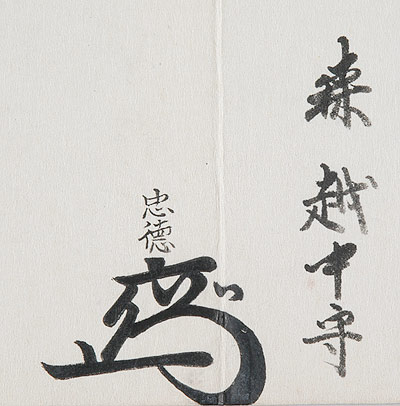 森越中守
忠徳